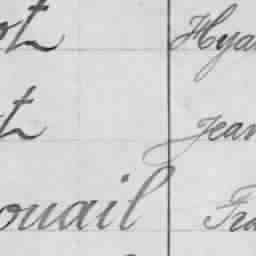 ot Hya
t Jean
ouail Fra